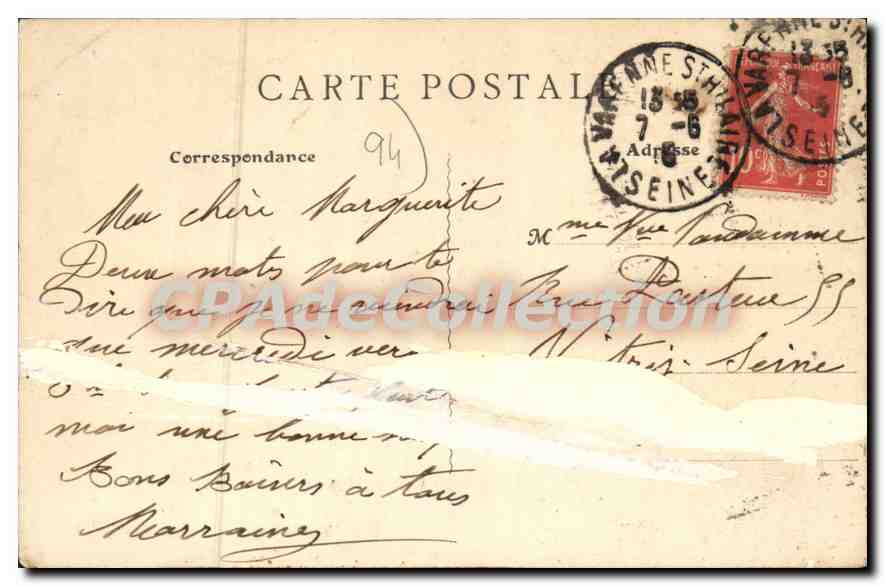 CARTE POSTALE
Correspondance
94
Ma chère Marguerite
Deux mots pour te
dire que je ne viendrai
que mercredi vers
moi une bonne
Bons Baisers à tous
Marraine
Adresse
Mme Vve Vandamme
Rue Pasteur 55
Vitry. Seine
LA VARENNE ST HILAIRE
13 35
7 -6
SEINE
LA VARENNE ST HI
13 35
7 -6
SEINE
10c
POSTES
CPAdeCollection